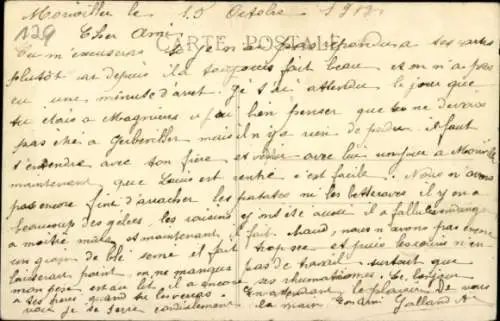 Moriviller le 15 Octobre 191
N29
CARTE POSTALE
Cher Ami
Tu m'excuseras si je n'ai pas répondu a tes cartes
plutôt car depuis il a toujours fait beau et on n'a pas
eu une minute d'arret. Je t'ai attendu le jour que
tu etais a Magnières j'ai bien penser que tu ne devais
pas été a Gerbeviller mais il n'y a rien de perdu. il faut
t'entendre avec ton frère et venir avec lui un jour a Moriville
maintenant que Louis est rentré c'est facile. Nous n'avons
pas encore fini d'arracher les patates ni les betteraves il y en a
beaucoup des gelées, les raisins y ont été aussi il a fallu les vendanger
a moitié mûrs et maintenant il fait chaud, nous n'avons pas encore
un grain de blé semé il fait trop sec et puis les n'en
laisserait point, on ne manque pas de travail surtout que
mon père est au lit il a encore ses rhumatismes. Le bonjour
a tes parents quand tu les verras. En attendant le plaisir de vous
voir je te serre cordialement la main. Ton Ami Galland A